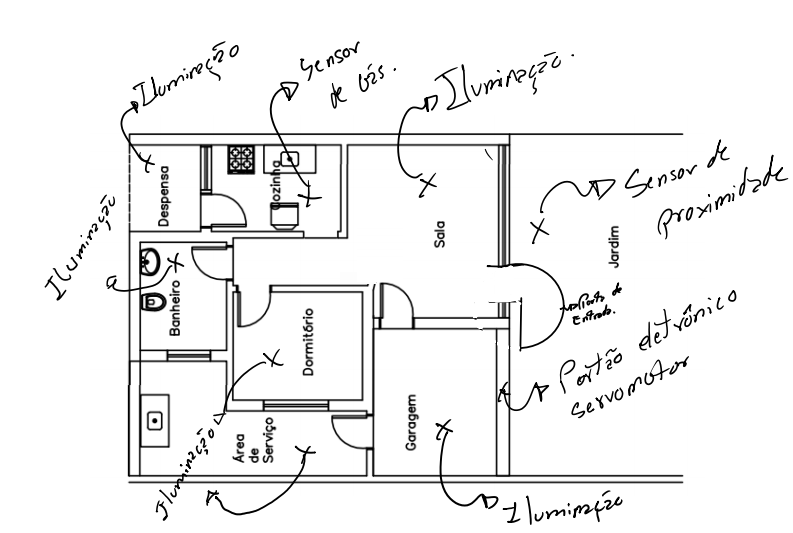 Iluminação
Sensor
de Gás.
Iluminação.
Despensa
Cozinha
Sala
Sensor de
proximidade
Jardim
Iluminação
Banheiro
Dormitório
Porta de
Entrada.
Portão eletrônico
servomotor
Iluminação
Área
de
Serviço
Garagem
Iluminação